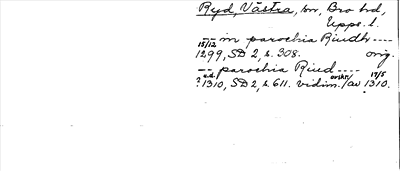 Ryd, Västra, sn, Bro hd,
Upps. l.
-- in parochia Riudh ----
15/12 1299, SD 2, s. 308. orig.
-- parochia Riud ----
? u.d. 1310, SD 2, s. 611. vidim. /av 17/5 1310.